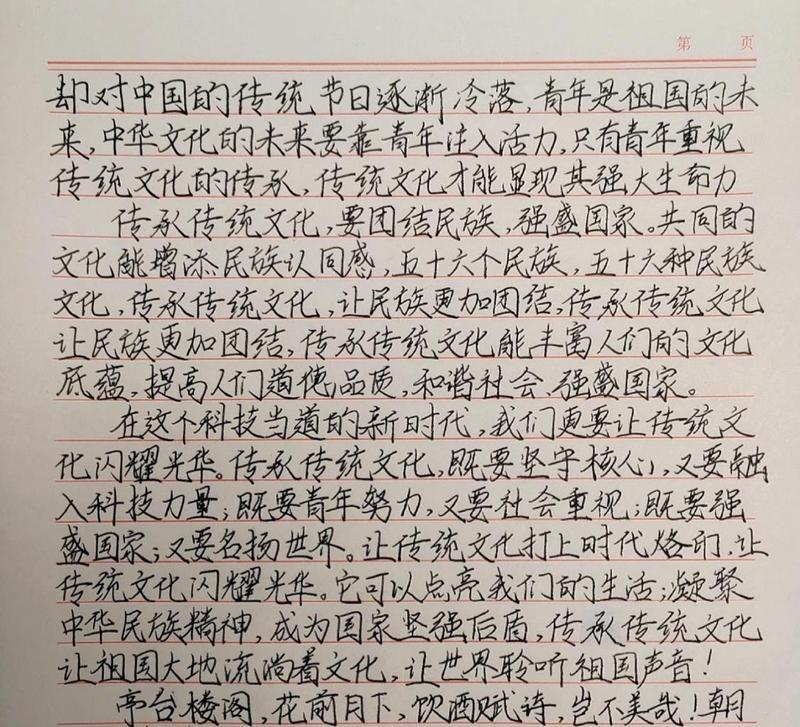 第 页
却对中国的传统节日逐渐冷落,青年是祖国的未
来,中华文化的未来要靠青年注入活力,只有青年重视
传统文化的传承,传统文化才能显现其强大生命力
传承传统文化,要团结民族,强盛国家。共同的
文化能增添民族认同感,五十六个民族,五十六种民族
文化,传承传统文化,让民族更加团结,传承传统文化
让民族更加团结,传承传统文化能丰富人们的文化
底蕴,提高人们道德品质,和谐社会、强盛国家。
在这个科技当道的新时代,我们更要让传统文
化闪耀光华。传承传统文化,既要坚守核心,又要融
入科技力量;既要青年努力,又要社会重视;既要强
盛国家;又要名扬世界。让传统文化打上时代烙印,让
传统文化闪耀光华。它可以点亮我们的生活;凝聚
中华民族精神,成为国家坚强后盾,传承传统文化
让祖国大地流淌着文化,让世界聆听祖国声音!
亭台楼阁,花前月下,饮酒赋诗,岂不美哉!朝